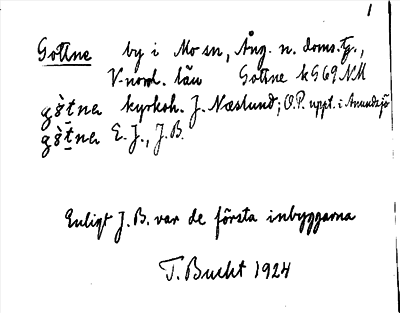 1
Gottne by i Mo sn, Ång. n. doms.g.,
V-norrl. län Gottne k 669 NM
gò̀tnea kyrkoh. J. Næslund; O.P. uppt. i Anundsjö
gò̀tnea E. J., J.B.
Enligt J.B. var de första inbyggarna
T. Bucht 1924